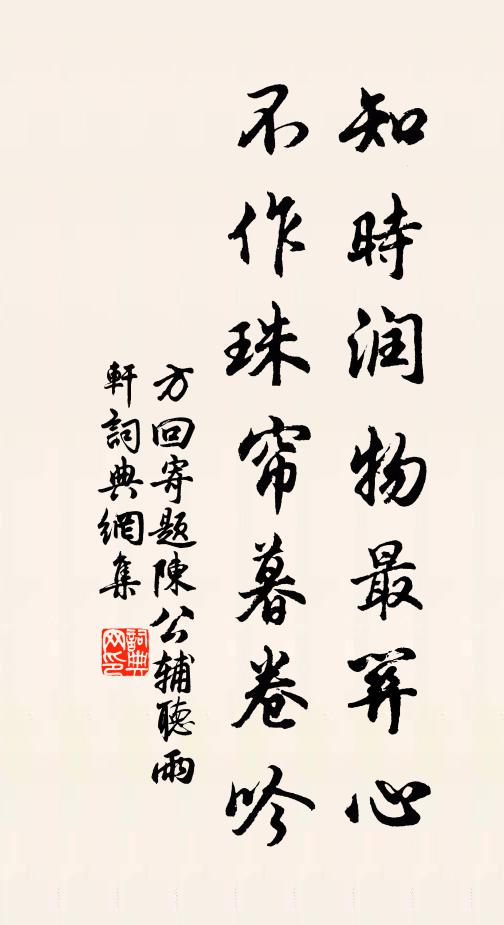 知時润物最関心
不作珠帘暮卷吟
方回寄题陳公辅聽雨
軒詞典網集
詞典网印